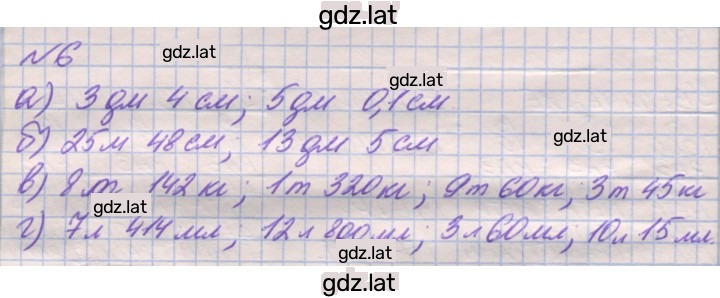 gdz.lat
№6 gdz.lat
а) 3 дм 4 см; 5 дм 0,1 см gdz.lat
б) 25 м 48 см; 13 дм 5 см gdz.lat
в) 8 т 142 кг; 1 т 320 кг; 9 т 60 кг; 3 т 45 кг
gdz.lat
г) 7 л 414 мл; 12 л 800 мл; 3 л 60 мл; 10 л 15 мл. gdz.lat
gdz.lat